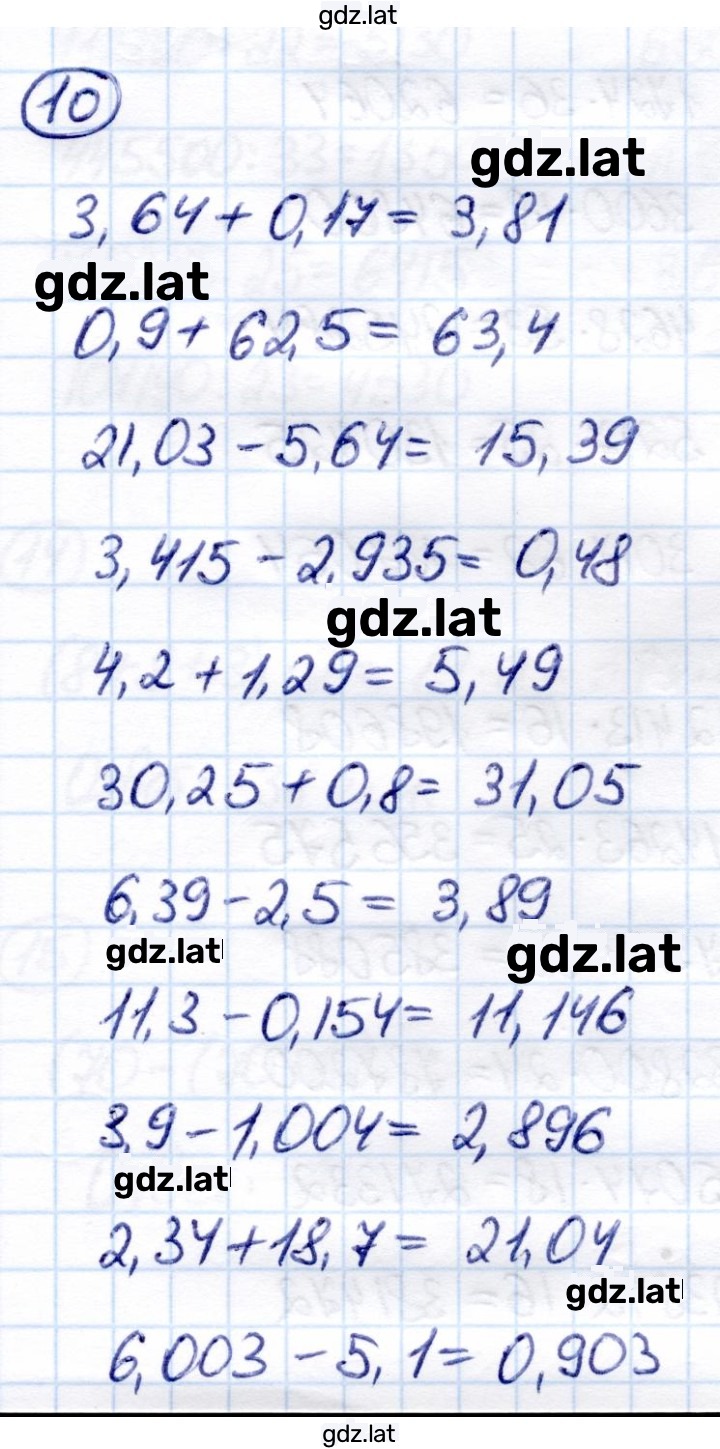 gdz.lat
10
gdz.lat
3,64 + 0,17 = 3,81
gdz.lat
0,9 + 62,5 = 63,4
21,03 - 5,64 = 15,39
3,415 - 2,935 = 0,48
gdz.lat
4,2 + 1,29 = 5,49
30,25 + 0,8 = 31,05
6,39 - 2,5 = 3,89
gdz.lat
gdz.lat
11,3 - 0,154 = 11,146
3,9 - 1,004 = 2,896
gdz.lat
2,34 + 18,7 = 21,04
gdz.lat
6,003 - 5,1 = 0,903
gdz.lat